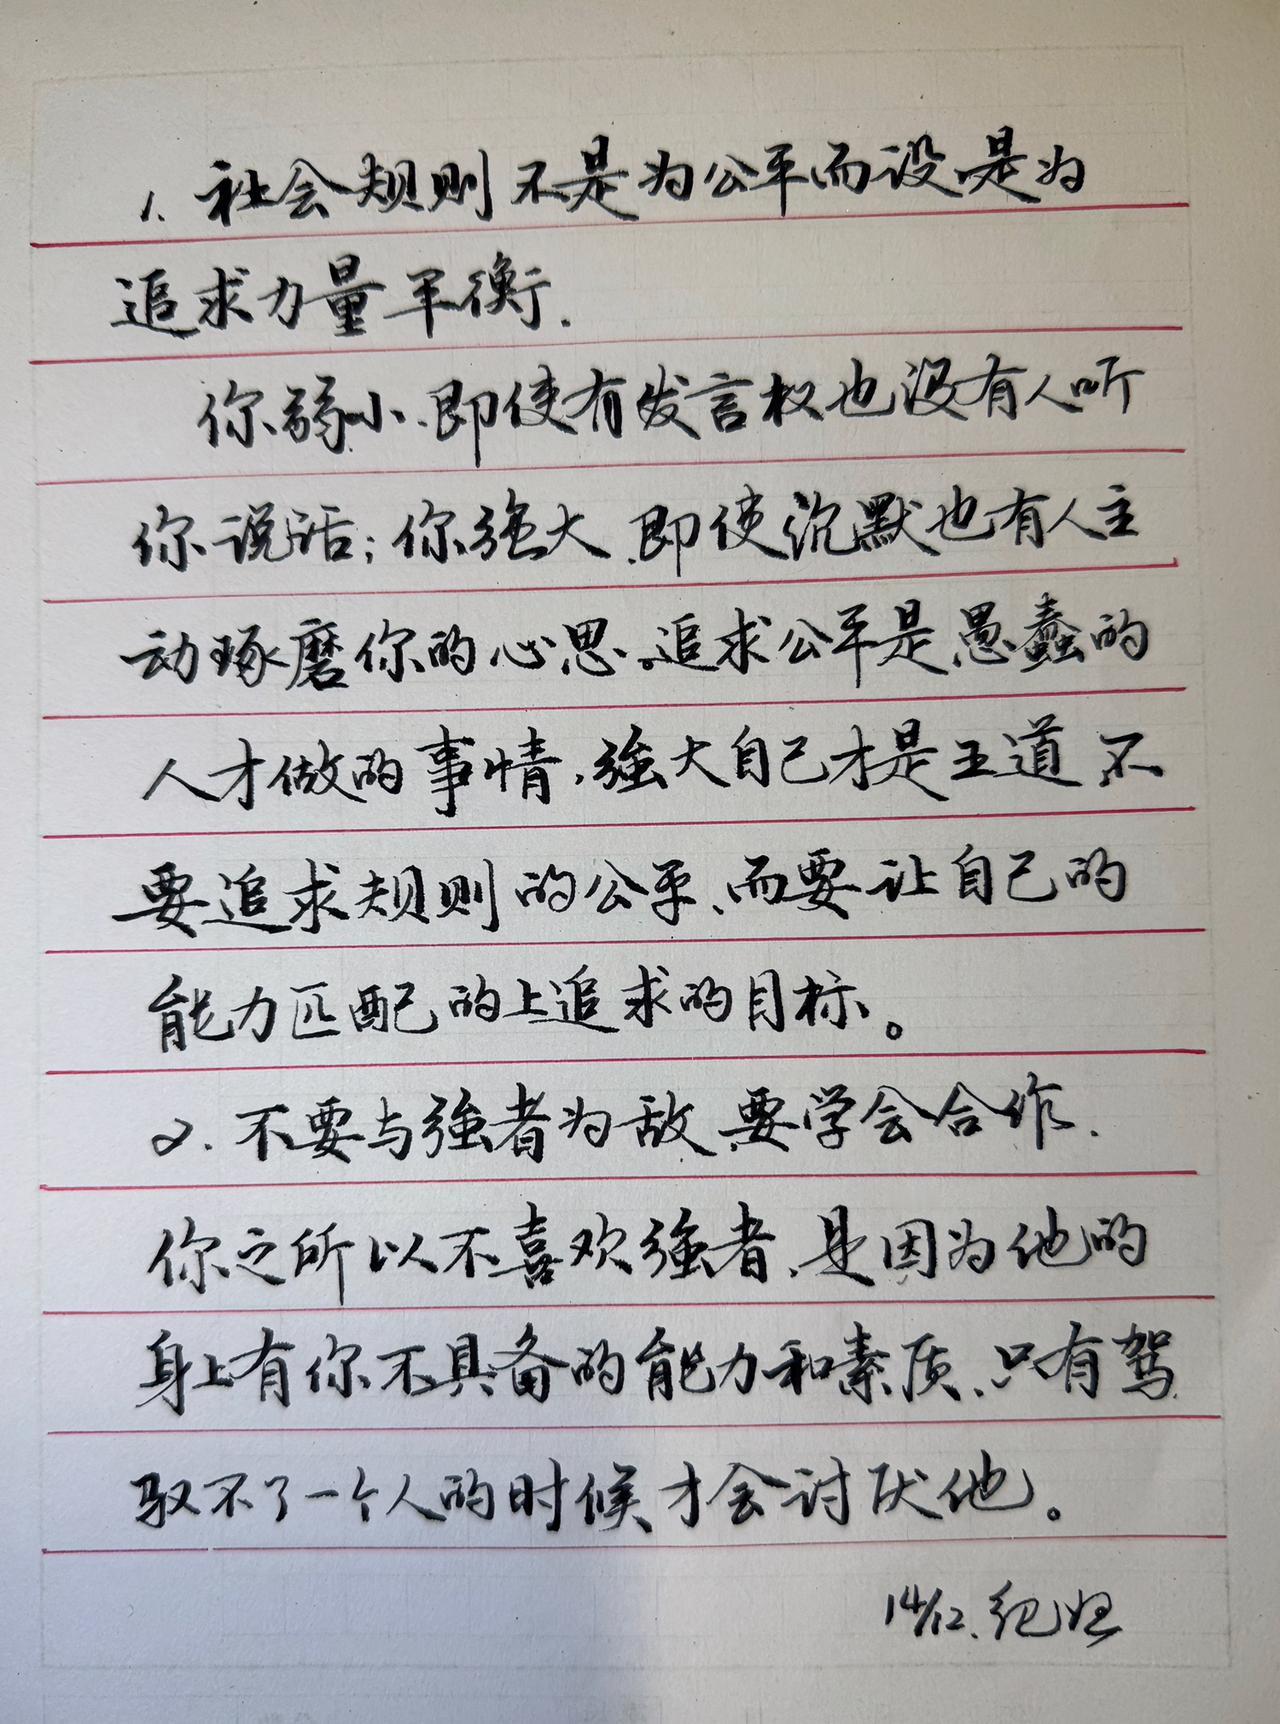 1. 社会规则不是为公平而设,是为
追求力量平衡.
你弱小、即使有发言权也没有人听
你说话;你强大、即使沉默也有人主
动琢磨你的心思。追求公平是愚蠢的
人才做的事情,強大自己才是王道,不
要追求规则的公平、而要让自己的
能力匹配的上追求的目标。
2. 不要与強者为敌,要学会合作.
你之所以不喜欢強者、是因为他的
身上有你不具备的能力和素质、只有驾
驭不了一个人的时候才会讨厌他。
14/12.